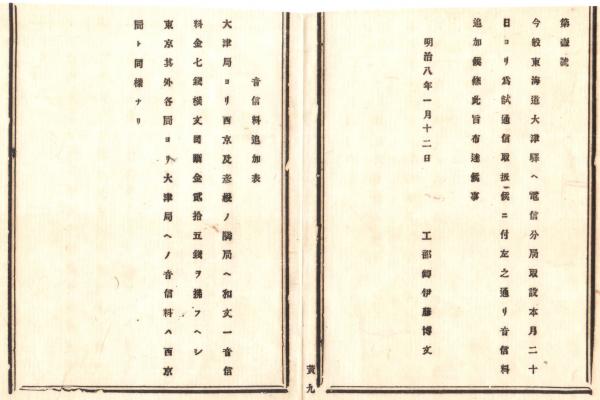 第壹號
今般東海道大津驛ヘ電信分局取設本月二十
日ヨリ爲試通信取扱候ニ付左之通リ音信料
追加候條此旨布達候事
明治八年一月十二日
工部卿伊藤博文
黄九
音信料追加表
大津局ヨリ西京及彦根ノ隣局ヘ和文一音信
料金七錢横文同斷金貳拾五錢ヲ拂フヘシ
東京其外各局ヨリ大津局ヘノ音信料ハ西京
局ト同樣ナリ